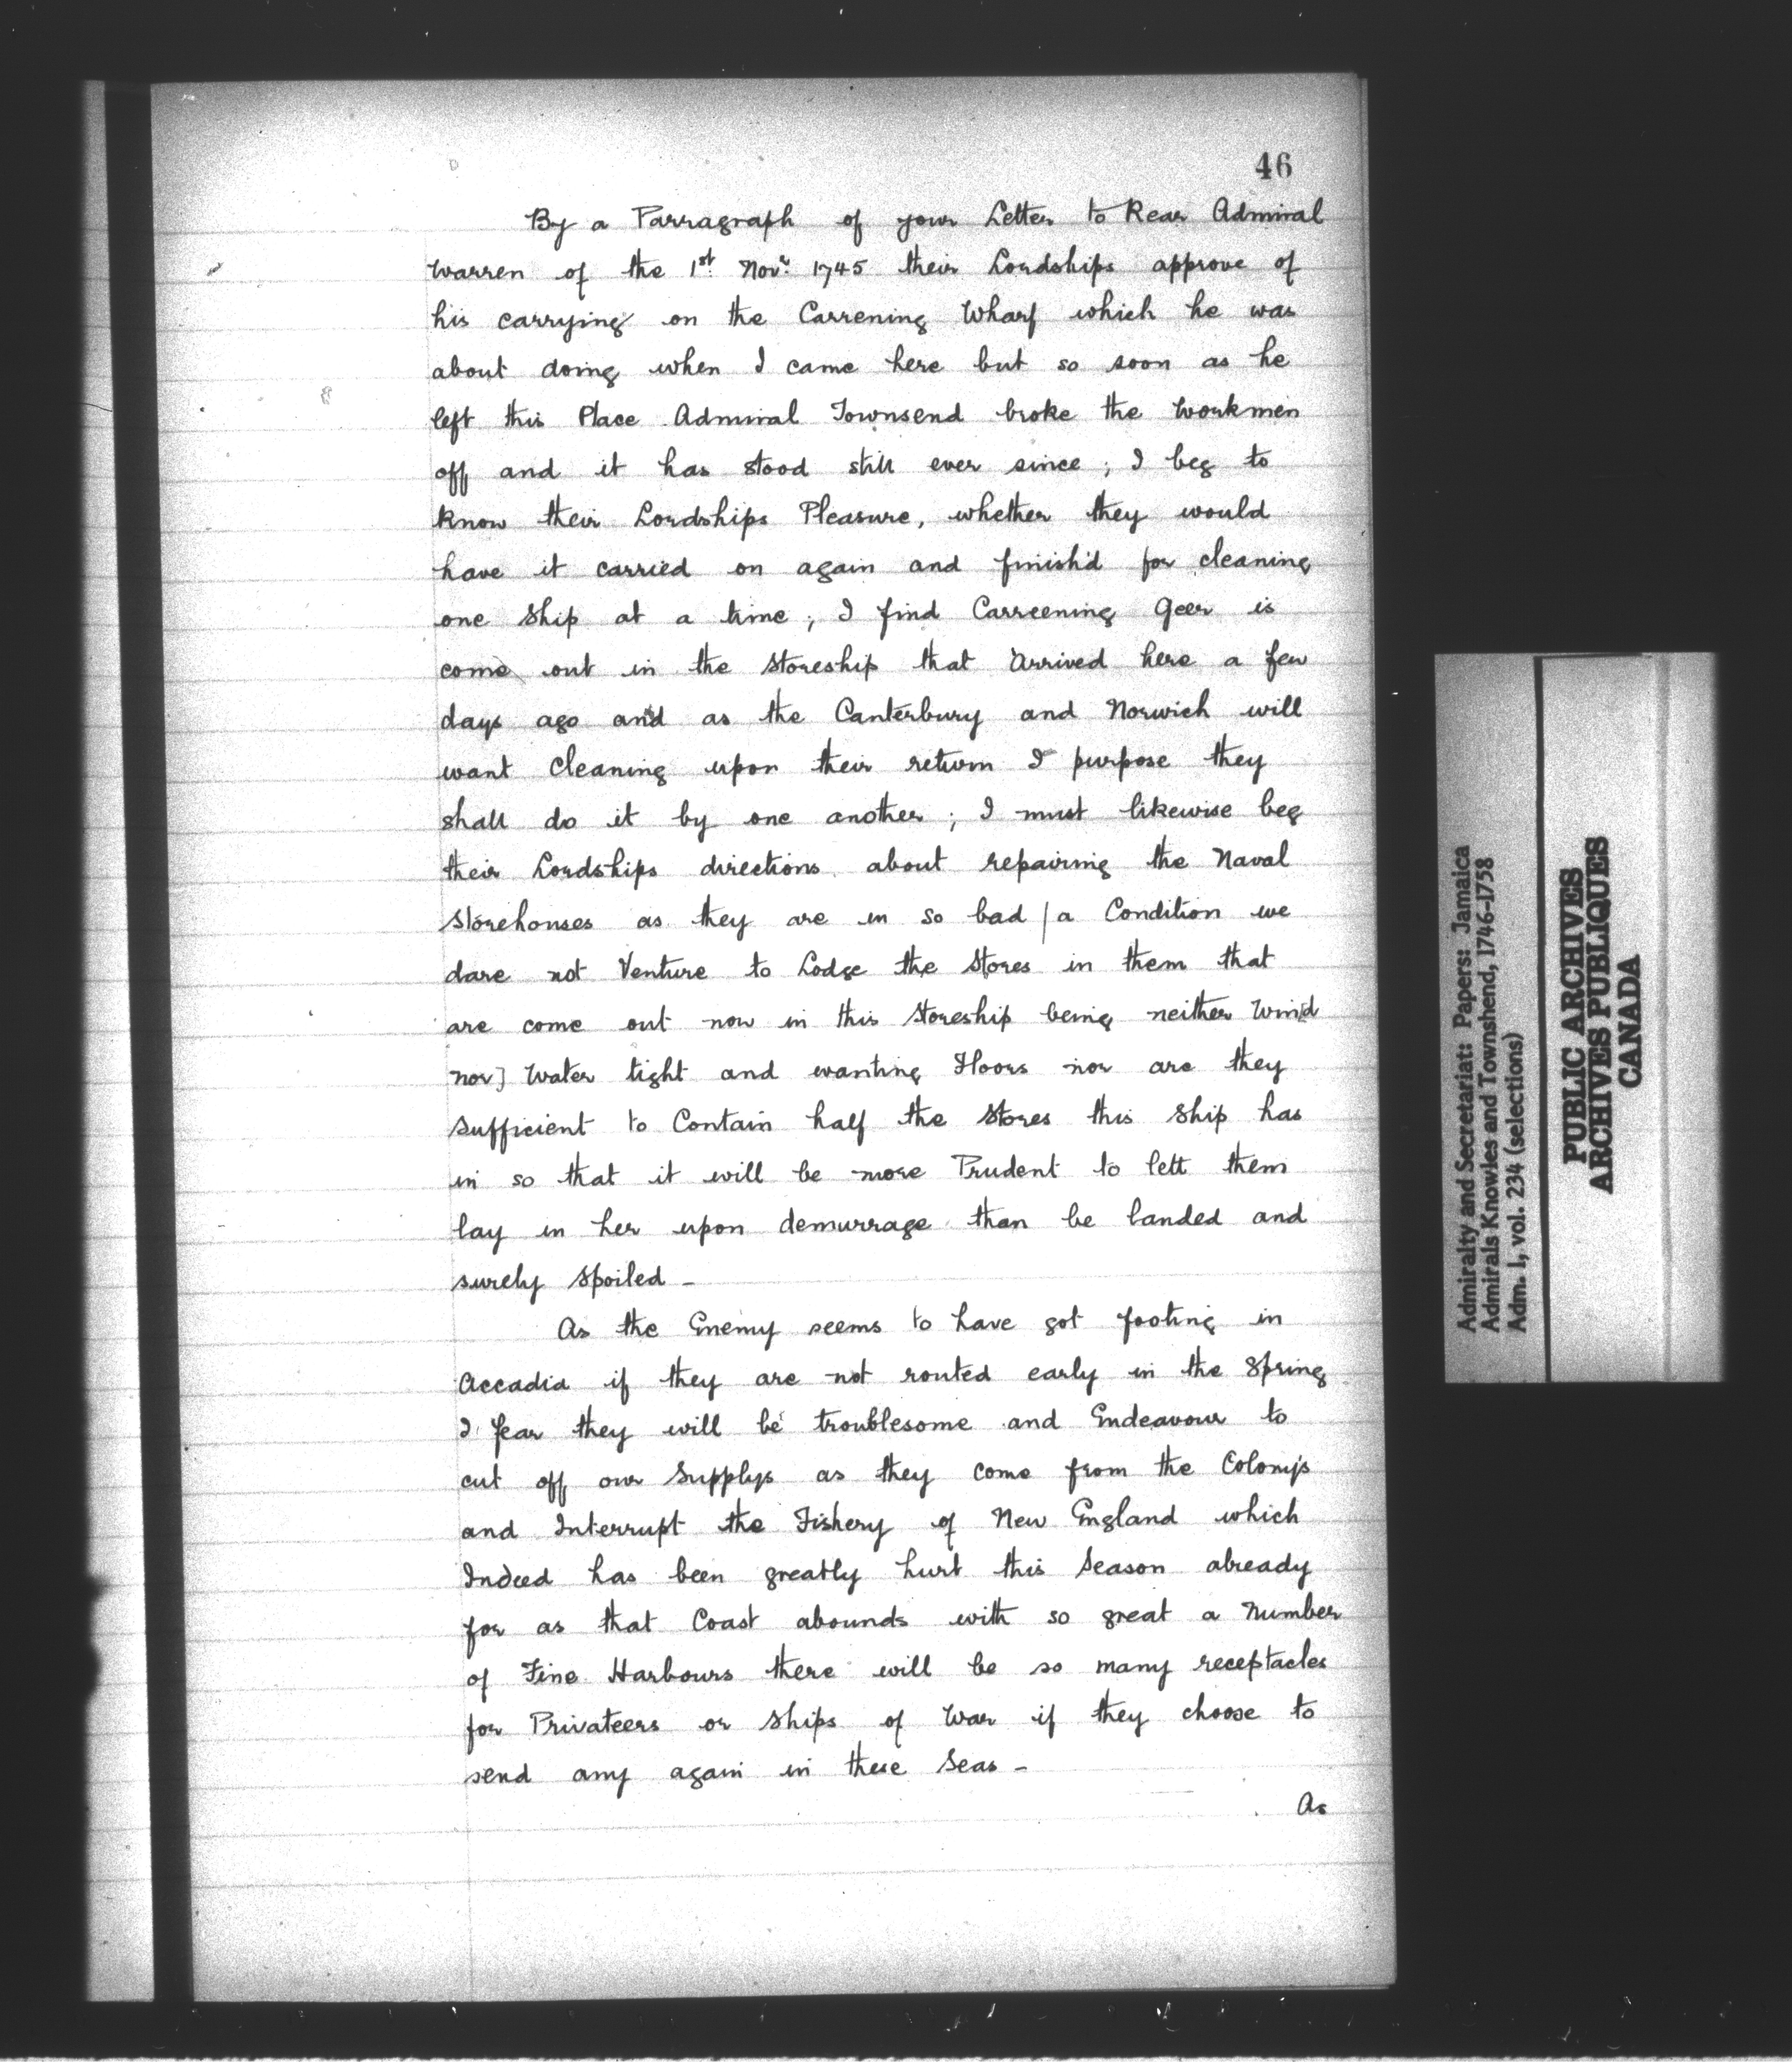 46
By a Parragraph of your Letter to Rear Admiral
Warren of the 1st Novr 1745 their Lordships approve of
his carrying on the Carrening Wharf which he was
about doing when I came here but so soon as he
left this Place Admiral Townsend broke the Workmen
off and it has stood still ever since; I beg to
know their Lordships Pleasure, whether they would
have it carried on again and finish'd for cleaning
one Ship at a time; I find Carreening Geer is
come out in the Storeship that Arrived here a few
days ago and as the Canterbury and Norwich will
want Cleaning upon their return I purpose they
shall do it by one another; I must likewise beg
their Lordships directions about repairing the Naval
Storehouses as they are in so bad / a Condition we
dare not Venture to Lodge the Stores in them that
are come out now in this Storeship being neither Wind
nor] Water tight and wanting Floors nor are they
Sufficient to Contain half the Stores this Ship has
in so that it will be more Prudent to lett them
lay in her upon demurrage than be landed and
surely Spoiled -
As the Enemy seems to have got footing in
Accadia if they are not routed early in the Spring
I fear they will be troublesome and Endeavour to
cut off our Supplys as they come from the Colonys
and Interrupt the Fishery of New England which
Indeed has been greatly hurt this Season already
for as that Coast abounds with so great a Number
of Fine Harbours there will be so many receptacles
for Privateers or Ships of War if they choose to
send any again in these Seas -
As
Admiralty and Secretariat: Papers: Jamaica
Admirals Knowles and Townshend, 1746-1758
Adm. 1, vol. 234 (selections)
PUBLIC ARCHIVES
ARCHIVES PUBLIQUES
CANADA